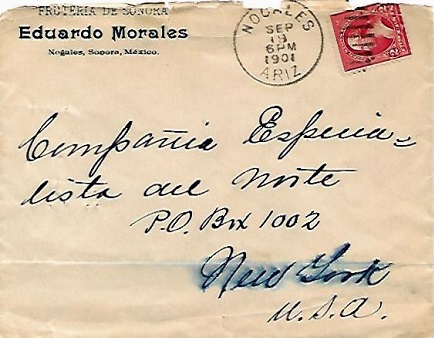 FRUTERIA DE SONORA
Eduardo Morales
Nogales, Sonora, México.
NOGALES
SEP
19
6PM
1901
ARIZ
Compañia Especia=
lista del Norte
P.O. Box 1002
New York
U.S.A.